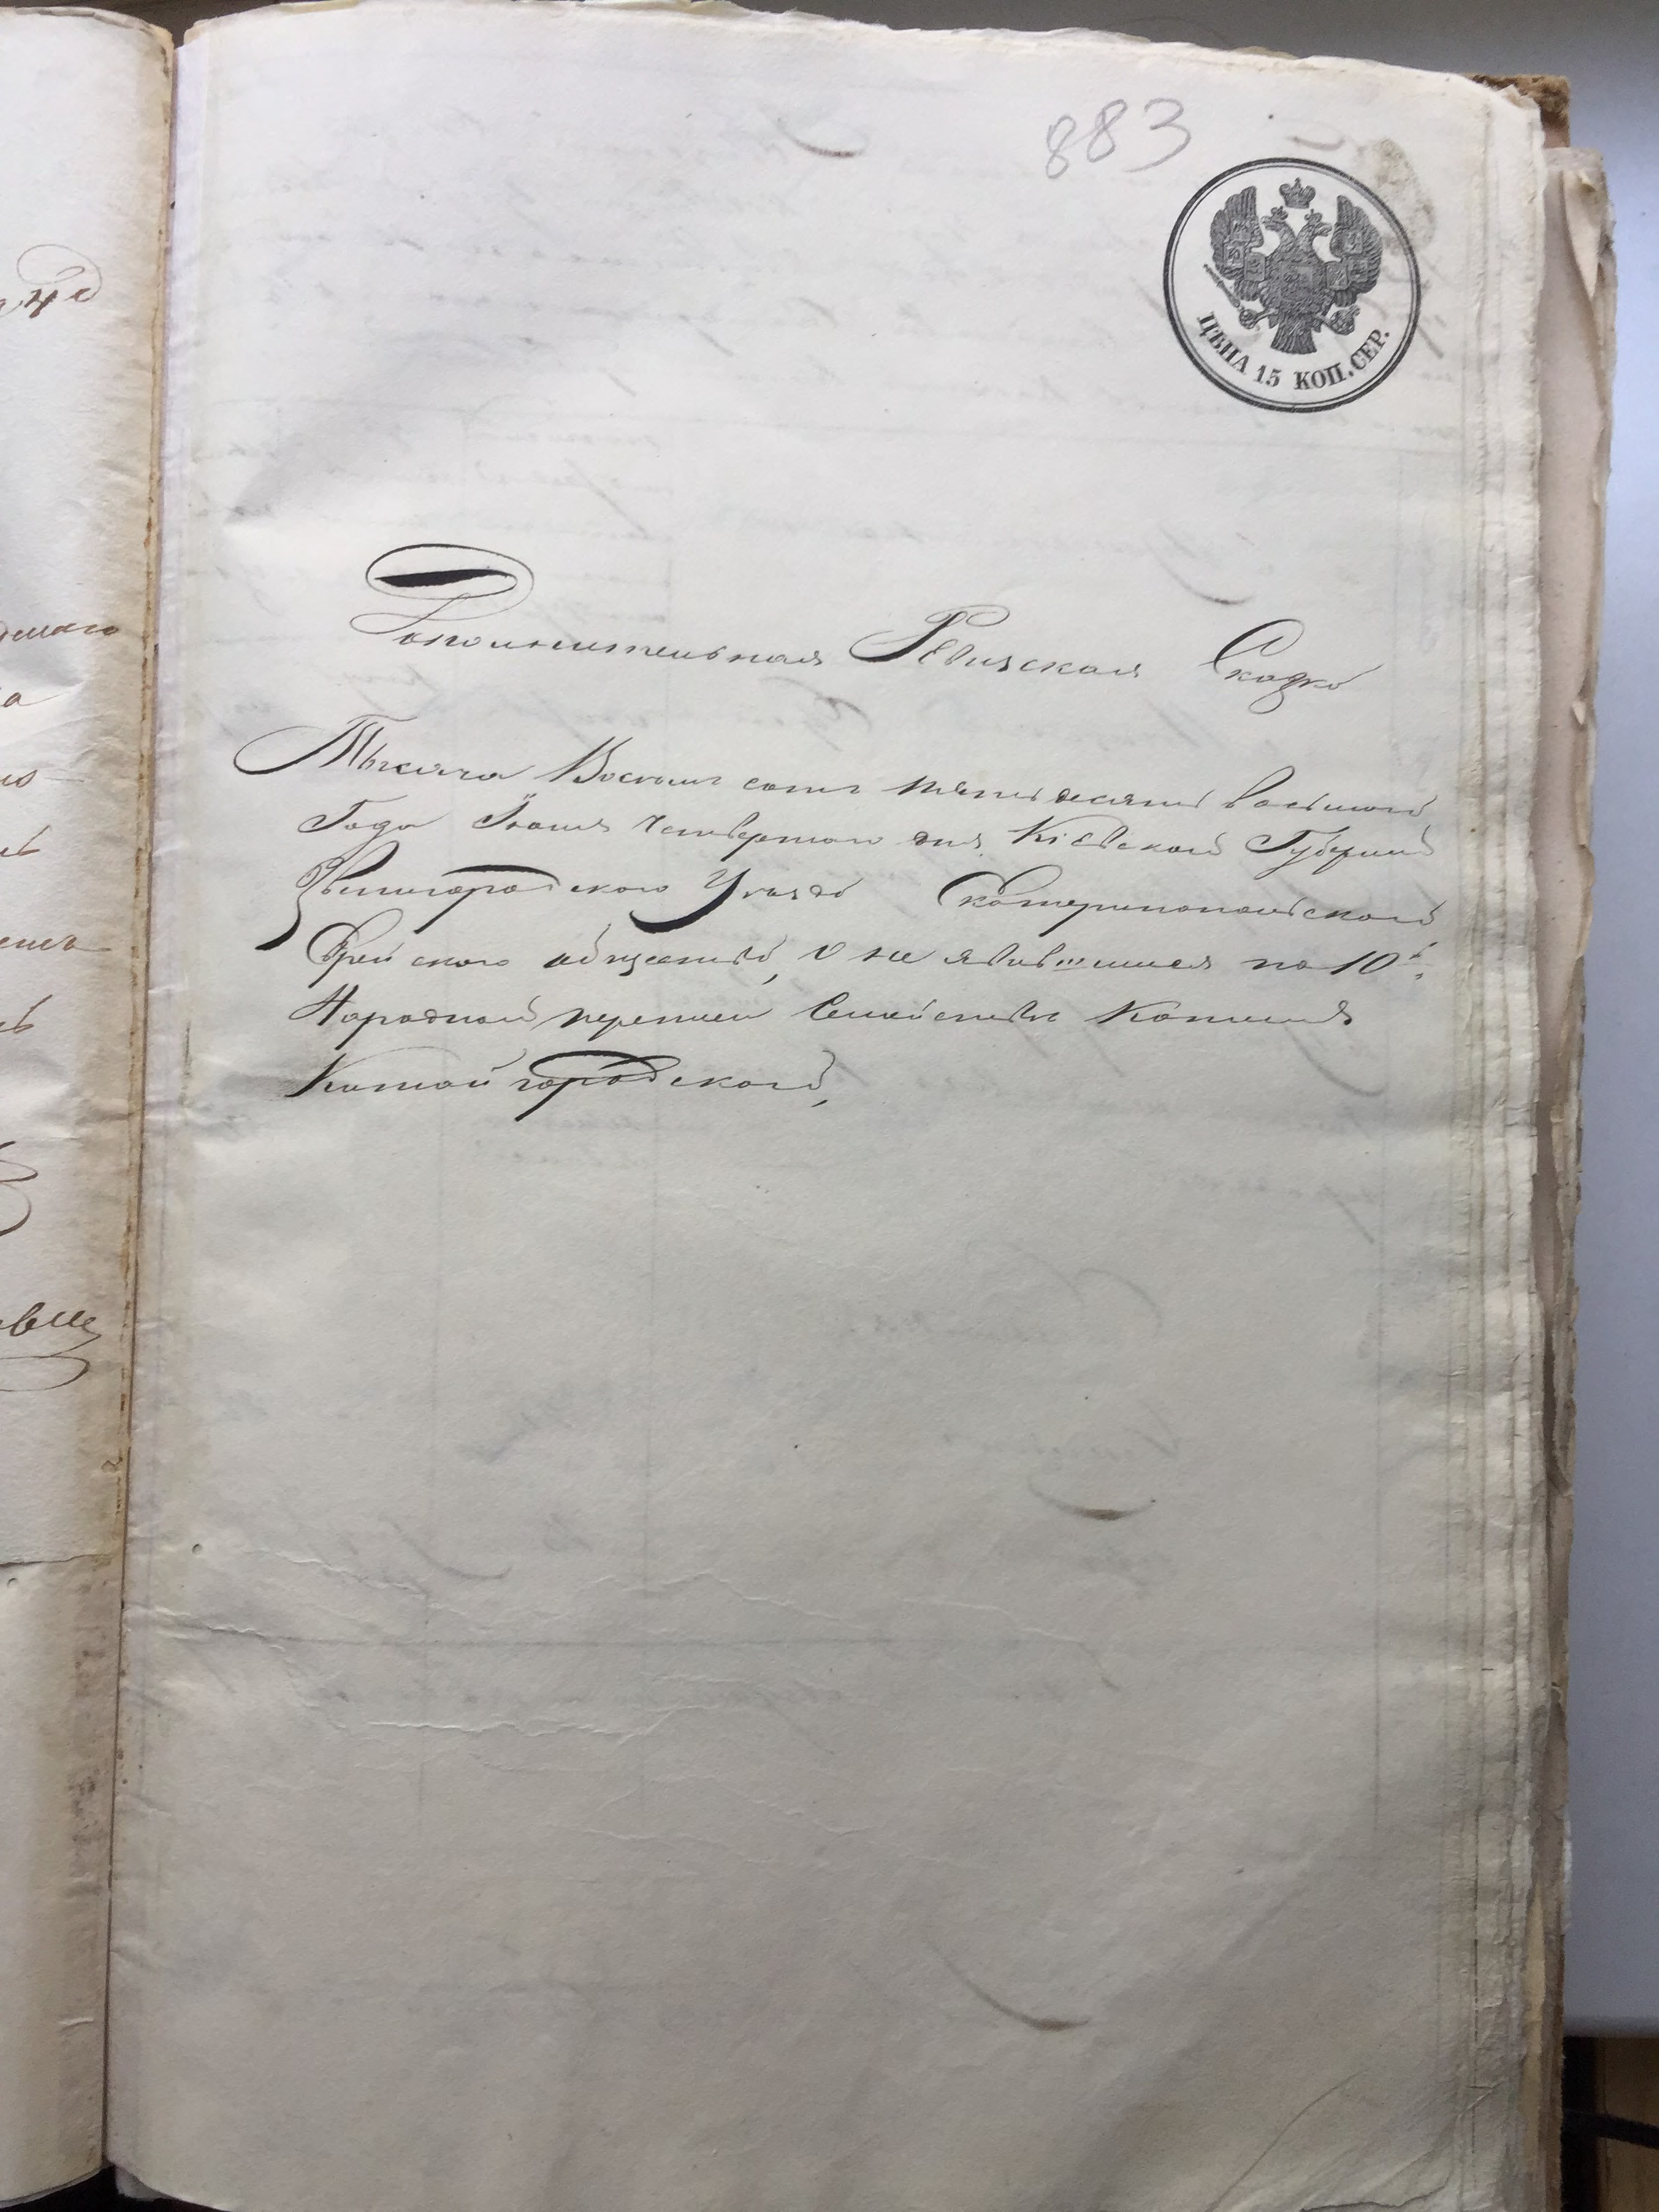 883
ЦѢНА 15 КОП. СЕР.
Дополнительная Ревизская Сказка
Тысяча Восемь сотъ пятьдесятъ восьмого
Года Іюня Четвертого дня, Кіевской Губерніи
Звенигородского Уѣзда Екатеринопольского
Еврейского общества, о не явившимся по 10й
Народной переписи Семействѣ
Китайгородского,